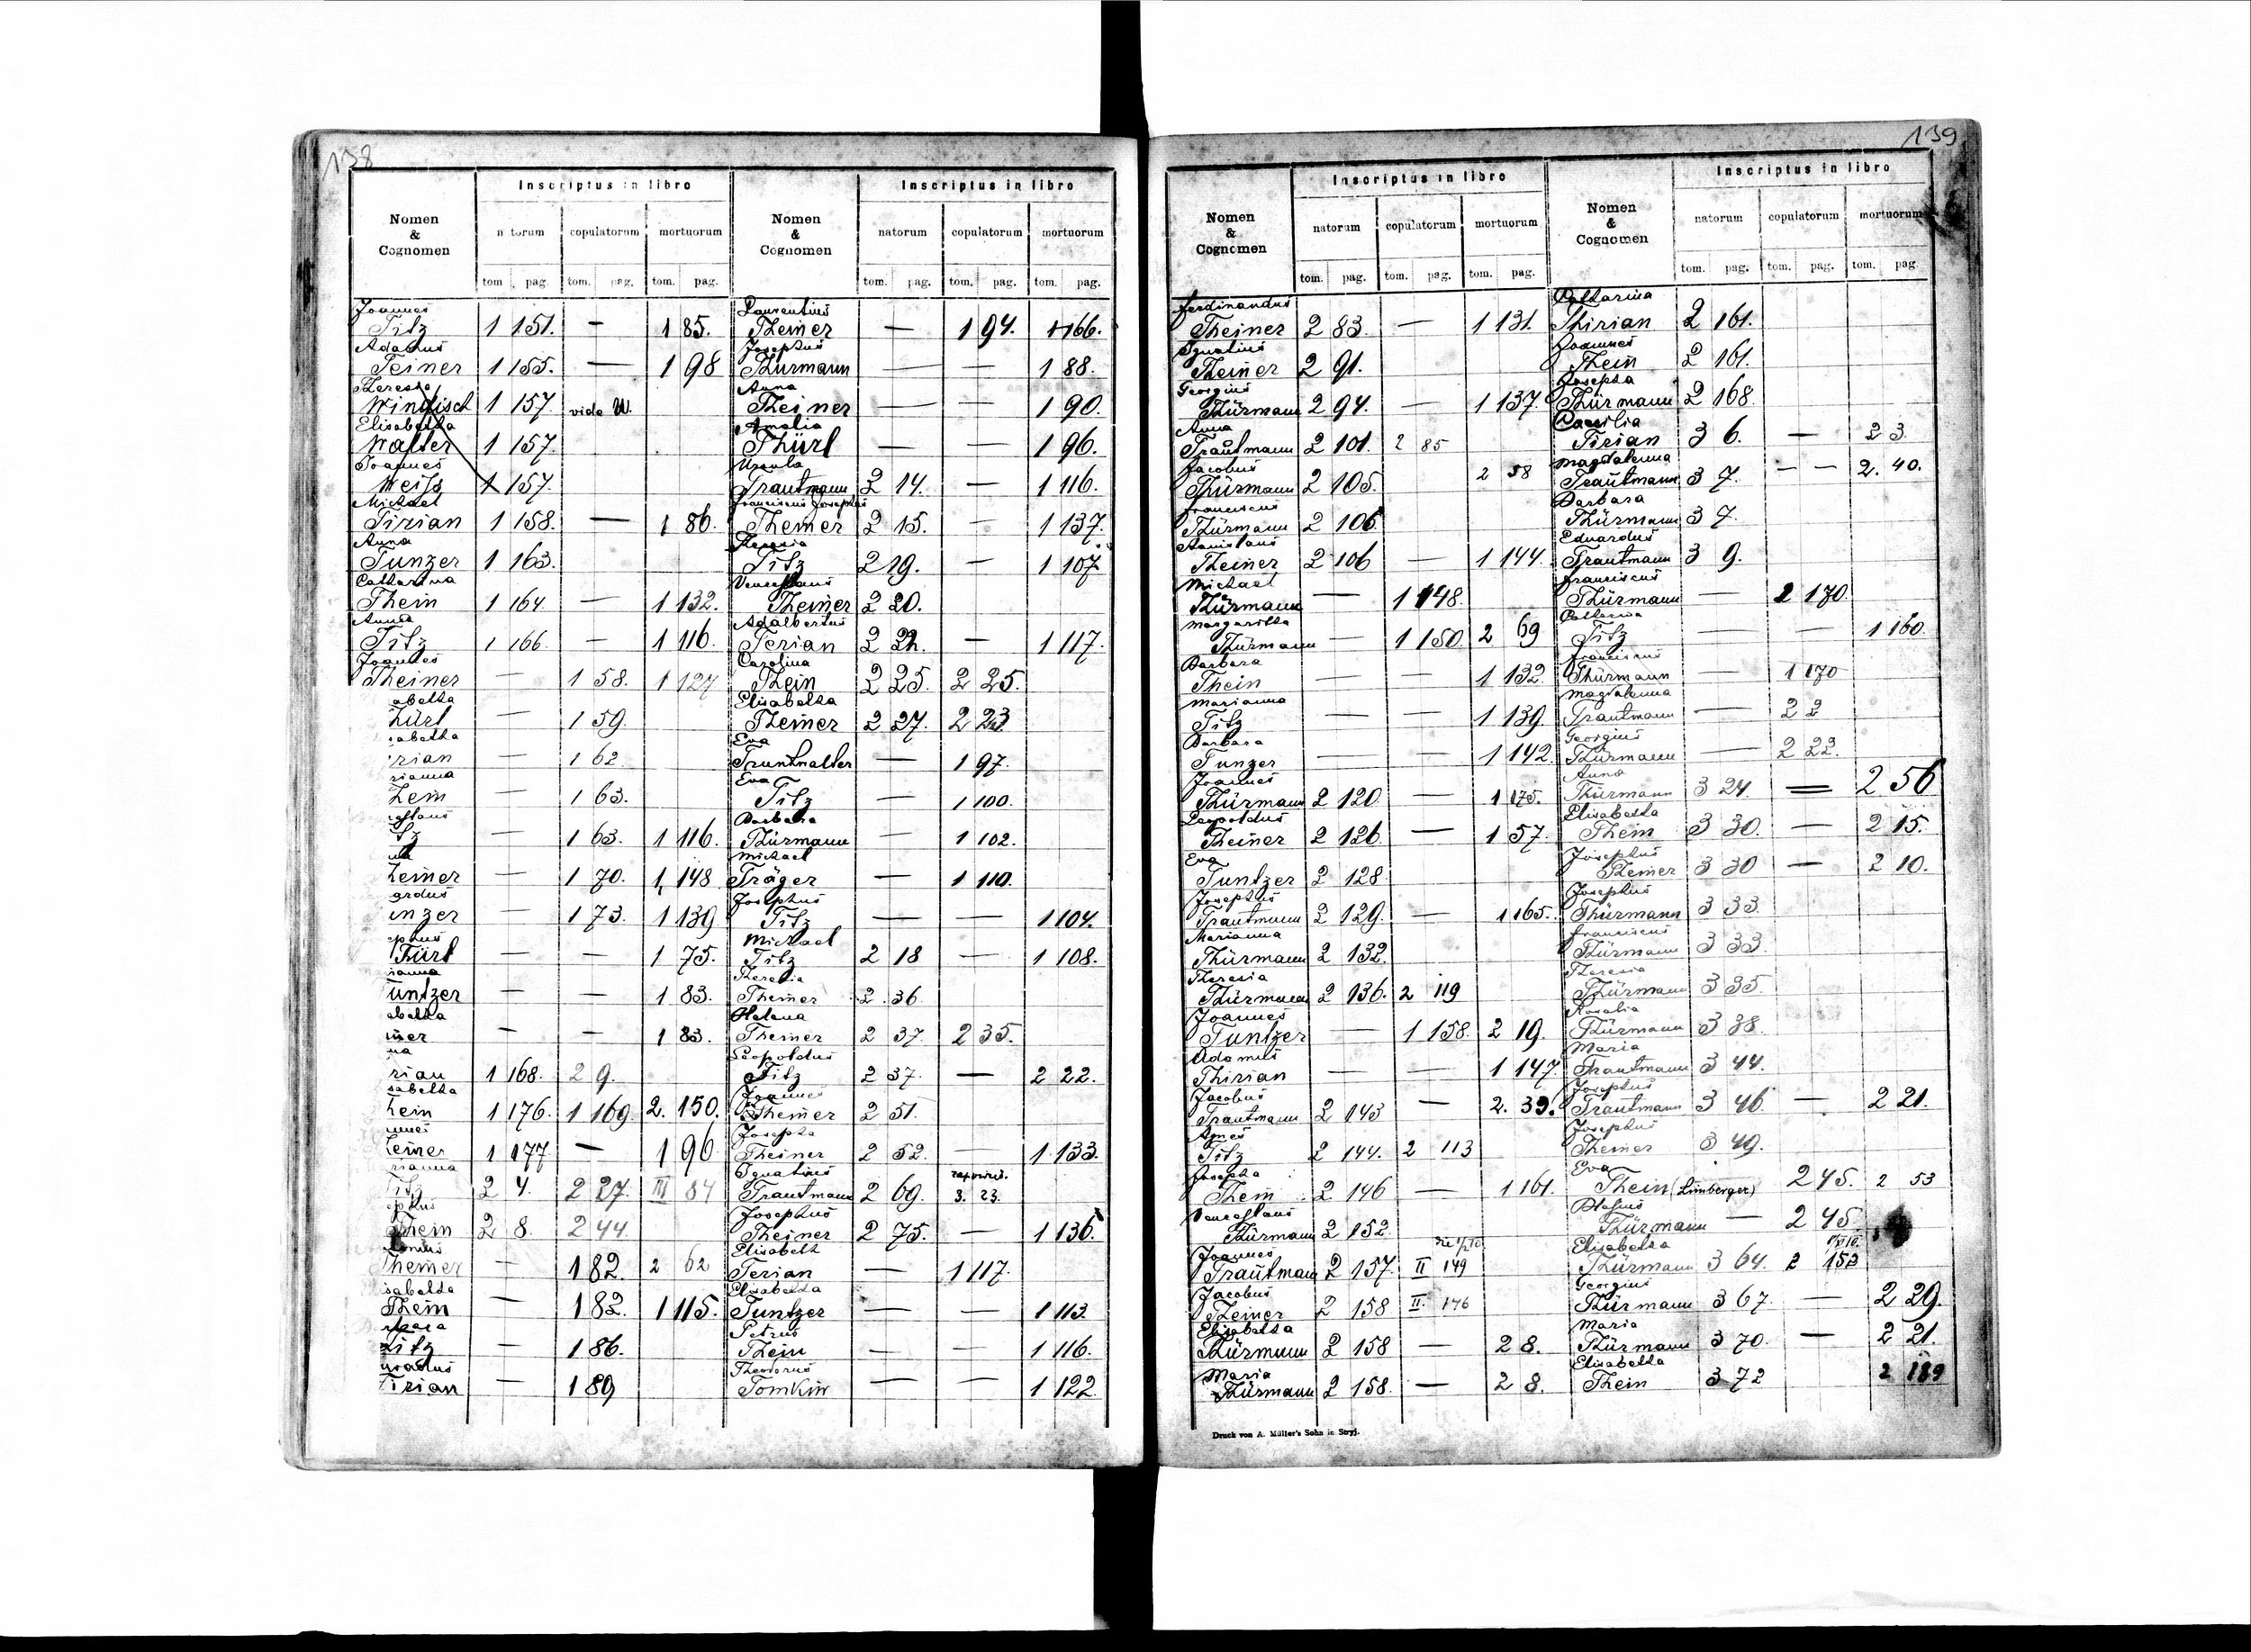 138
Inscriptus in libro
Inscriptus in libro
Nomen & Cognomen natorum copulatorum mortuorum Nomen & Cognomen natorum copulatorum mortuorum
tom. pag. tom. pag. tom. pag. tom. pag. tom. pag. tom. pag.
Joannes
Titz 1 151. — 1 85.
Adamus
Teiner 1 155. — 1 98
Theresia
Windisch 1 157. vide W.
Elisabetha
Walter 1 157.
Joannes
Weiß 1 157.
Michael
Tirian 1 158. — 1 86.
Anna
Tunzer 1 163.
Catharina
Thein 1 164. — 1 132.
Anna
Titz 1 166. — 1 116.
Joannes
Theiner — 1 58. 1 127
abetha
hürl — 1 59.
abetha
rian — 1 62.
rianna
hein — 1 63.
eslaus
tz — 1 63. 1 116.
na
heiner — 1 70. 1 148
ardus
unzer — 1 73. 1 139
ephus
Türl — — 1 75.
ianna
untzer — — 1 83.
abetha
iner — — 1 83.
na
rian 1 168. 2 9.
sabetha
hein 1 176. 1 169. 2. 150.
nnes
heiner 1 177 — 1 96
rianna
Titz 2 4. 2 27. III 84
ephus
Thein 2 8. 2 44.
Theiner — 1 82. 2 62
isabetha
Thein — 1 82. 1 115.
rbara
Titz — 1 86.
Tirian — 1 89
Laurentius
Theiner — 1 94. 1 166.
Josephus
Thürmann — — 1 88.
Anna
Theiner — — 1 90.
Amalia
Thürl — — 1 96.
Ursula
Trautmann 2 14. — 1 116.
Franciscus Josephus
Theiner 2 15. — 1 137.
Theresia
Titz 2 19. — 1 107
Venceslaus
Theiner 2 20.
Adalbertus
Terian 2 22. — 1 117.
Carolina
Thein 2 25. 2 25.
Elisabetha
Theiner 2 27. 2 23
Eva
Truntwalter — 1 97.
Eva
Titz — 1 100.
Barbara
Thürmann — 1 102.
Michael
Träger — 1 110.
Josephus
Titz — — 1 104.
Michael
Titz 2 18 — 1 108.
Theresia
Theiner 2 36
Helena
Theiner 2 37. 2 35.
Leopoldus
Titz 2 37. — 2 22.
Joannes
Theiner 2 51.
Josepha
Theiner 2 52. — 1 133.
Ignatius
Trautmann 2 69. 3. 23.
Josephus
Theiner 2 75. — 1 136
Elisabeth
Terian — 1 117.
Elisabetha
Tuntzer — — 1 113.
Petrus
Thein — — 1 116.
Theodorus
Tomkiw — — 1 122
139
Inscriptus in libro
Inscriptus in libro
Nomen & Cognomen natorum copulatorum mortuorum Nomen & Cognomen natorum copulatorum mortuorum
tom. pag. tom. pag. tom. pag. tom. pag. tom. pag. tom. pag.
Ferdinandus
Theiner 2 83. — 1 131.
Ignatius
Theiner 2 91.
Georgius
Thürmann 2 94. — 1 137.
Anna
Trautmann 2 101. 2 85
Jacobus
Thürmann 2 105. 2 58
Franciscus
Thürmann 2 106.
Stanislaus
Theiner 2 106 — 1 144.
Michael
Thürmann — 1 148.
Margaritha
Thürmann — 1 150. 2 69
Barbara
Thein — — 1 132.
Marianna
Titz — — 1 139.
Barbara
Tunzer — — 1 142.
Joannes
Thürmann 2 120. — 1 175.
Leopoldus
Theiner 2 126 — 1 57.
Eva
Tuntzer 2 128.
Josephus
Trautmann 2 129. — 1 165.
Marianna
Thürmann 2 132.
Theresia
Thürmann 2 136. 2 119
Joannes
Tuntzer — 1 158. 2 19.
Adamus
Thirian — — 1 147.
Jacobus
Trautmann 2 143 — 2. 39.
Agnes
Titz 2 144. 2 113
Josepha
Thein 2 146 — 1 161.
Venceslaus
Thürmann 2 152.
Joannes
Trautmann 2 157. II 149
Jacobus
Theiner 2 158 II. 146
Elisabetha
Thürmann 2 158 — 2 8.
Maria
Thürmann 2 158. — 2 8.
Catharina
Thirian 2 161.
Joannes
Thein 2 161.
Josepha
Thürmann 2 168.
Caecilia
Tirian 3 6. — 2 3.
Magdalenna
Trautmann 3 7. — — 2. 40.
Barbara
Thürmann 3 7.
Eduardus
Trautmann 3 9.
Franciscus
Thürmann — 2 170.
Catharina
Titz — — 1 160.
Franciscus
Thürmann — 1 170
Magdalenna
Trautmann — 2 2
Georgius
Thürmann — 2 22.
Anna
Thürmann 3 24. — 2 56
Elisabetha
Thein 3 30. — 2 15.
Josephus
Theiner 3 30 — 2 10.
Josephus
Thürmann 3 33.
Franciscus
Thürmann 3 33.
Theresia
Thürmann 3 35.
Rosalia
Thürmann 3 38.
Maria
Trautmann 3 44.
Josephus
Trautmann 3 46. — 2 21.
Josephus
Theiner 3 49.
Eva
Thein (Limberger) 2 45. 2 53
Blasius
Thürmann — 2 45
Elisabetha
Thürmann 3 64. 2 152
Georgius
Thürmann 3 67. — 2 29.
Maria
Thürmann 3 70. — 2 21.
Elisabetha
Thein 3 72 2 189
Druck von A. Müller's Sohn in Stryj.